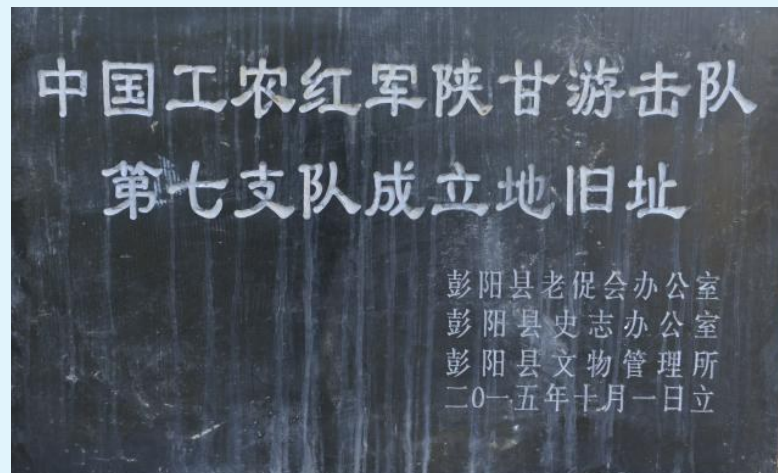 中国工农红军陕甘游击队
第七支队成立地旧址
彭阳县老促会办公室
彭阳县史志办公室
彭阳县文物管理所
二0一五年十月一日立